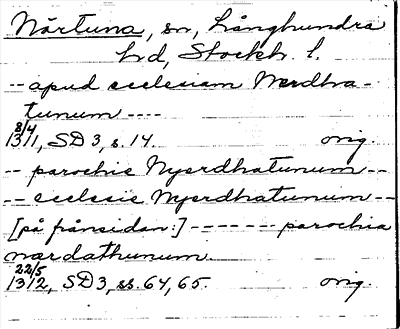 Närtuna, sn, Långhundra
hd, Stockh. l.
-- apud ecclesiam Nerdha-
tunum ----
8/4
1311, SD 3, s. 14. orig.
-- parochie Nyærdhatunum --
-- ecclesie Nyærdhatunum --
[på frånsidan:] ------- parochia
nærdathunum.
22/5
1312, SD 3, ss. 64, 65. orig.